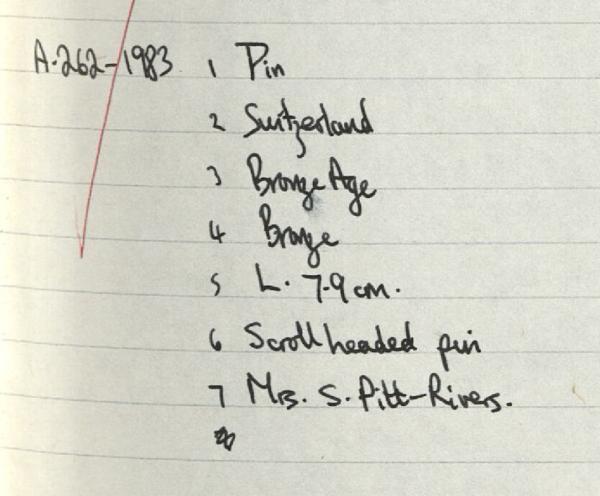 A.262-1983 1 Pin
2 Switzerland
3 Bronze Age
4 Bronze
5 L. 7.9 cm.
6 Scroll headed pin
7 Mrs. S. Pitt-Rivers.